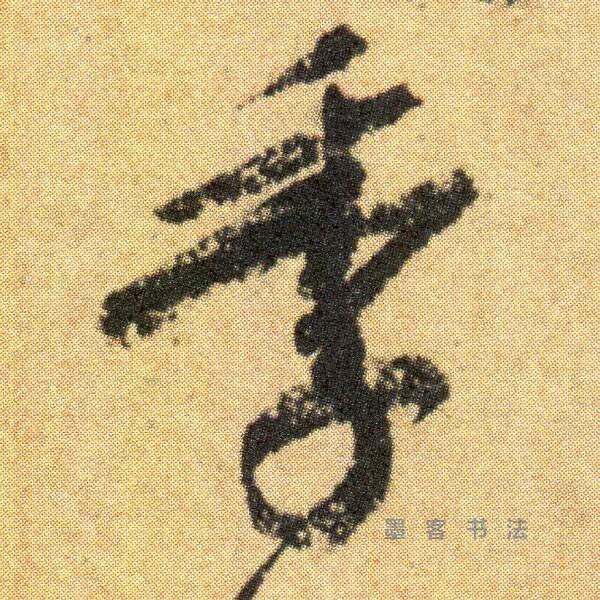 季
墨客书法